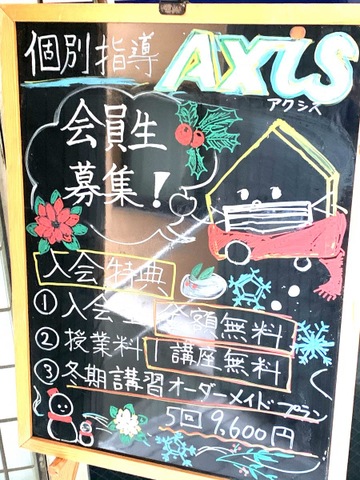 個別指導 AXiS
アクシス
会員生
募集!
入会特典
①入会金 全額無料
②授業料 1講座無料
③冬期講習オーダーメイドプラン
5回 9,600円